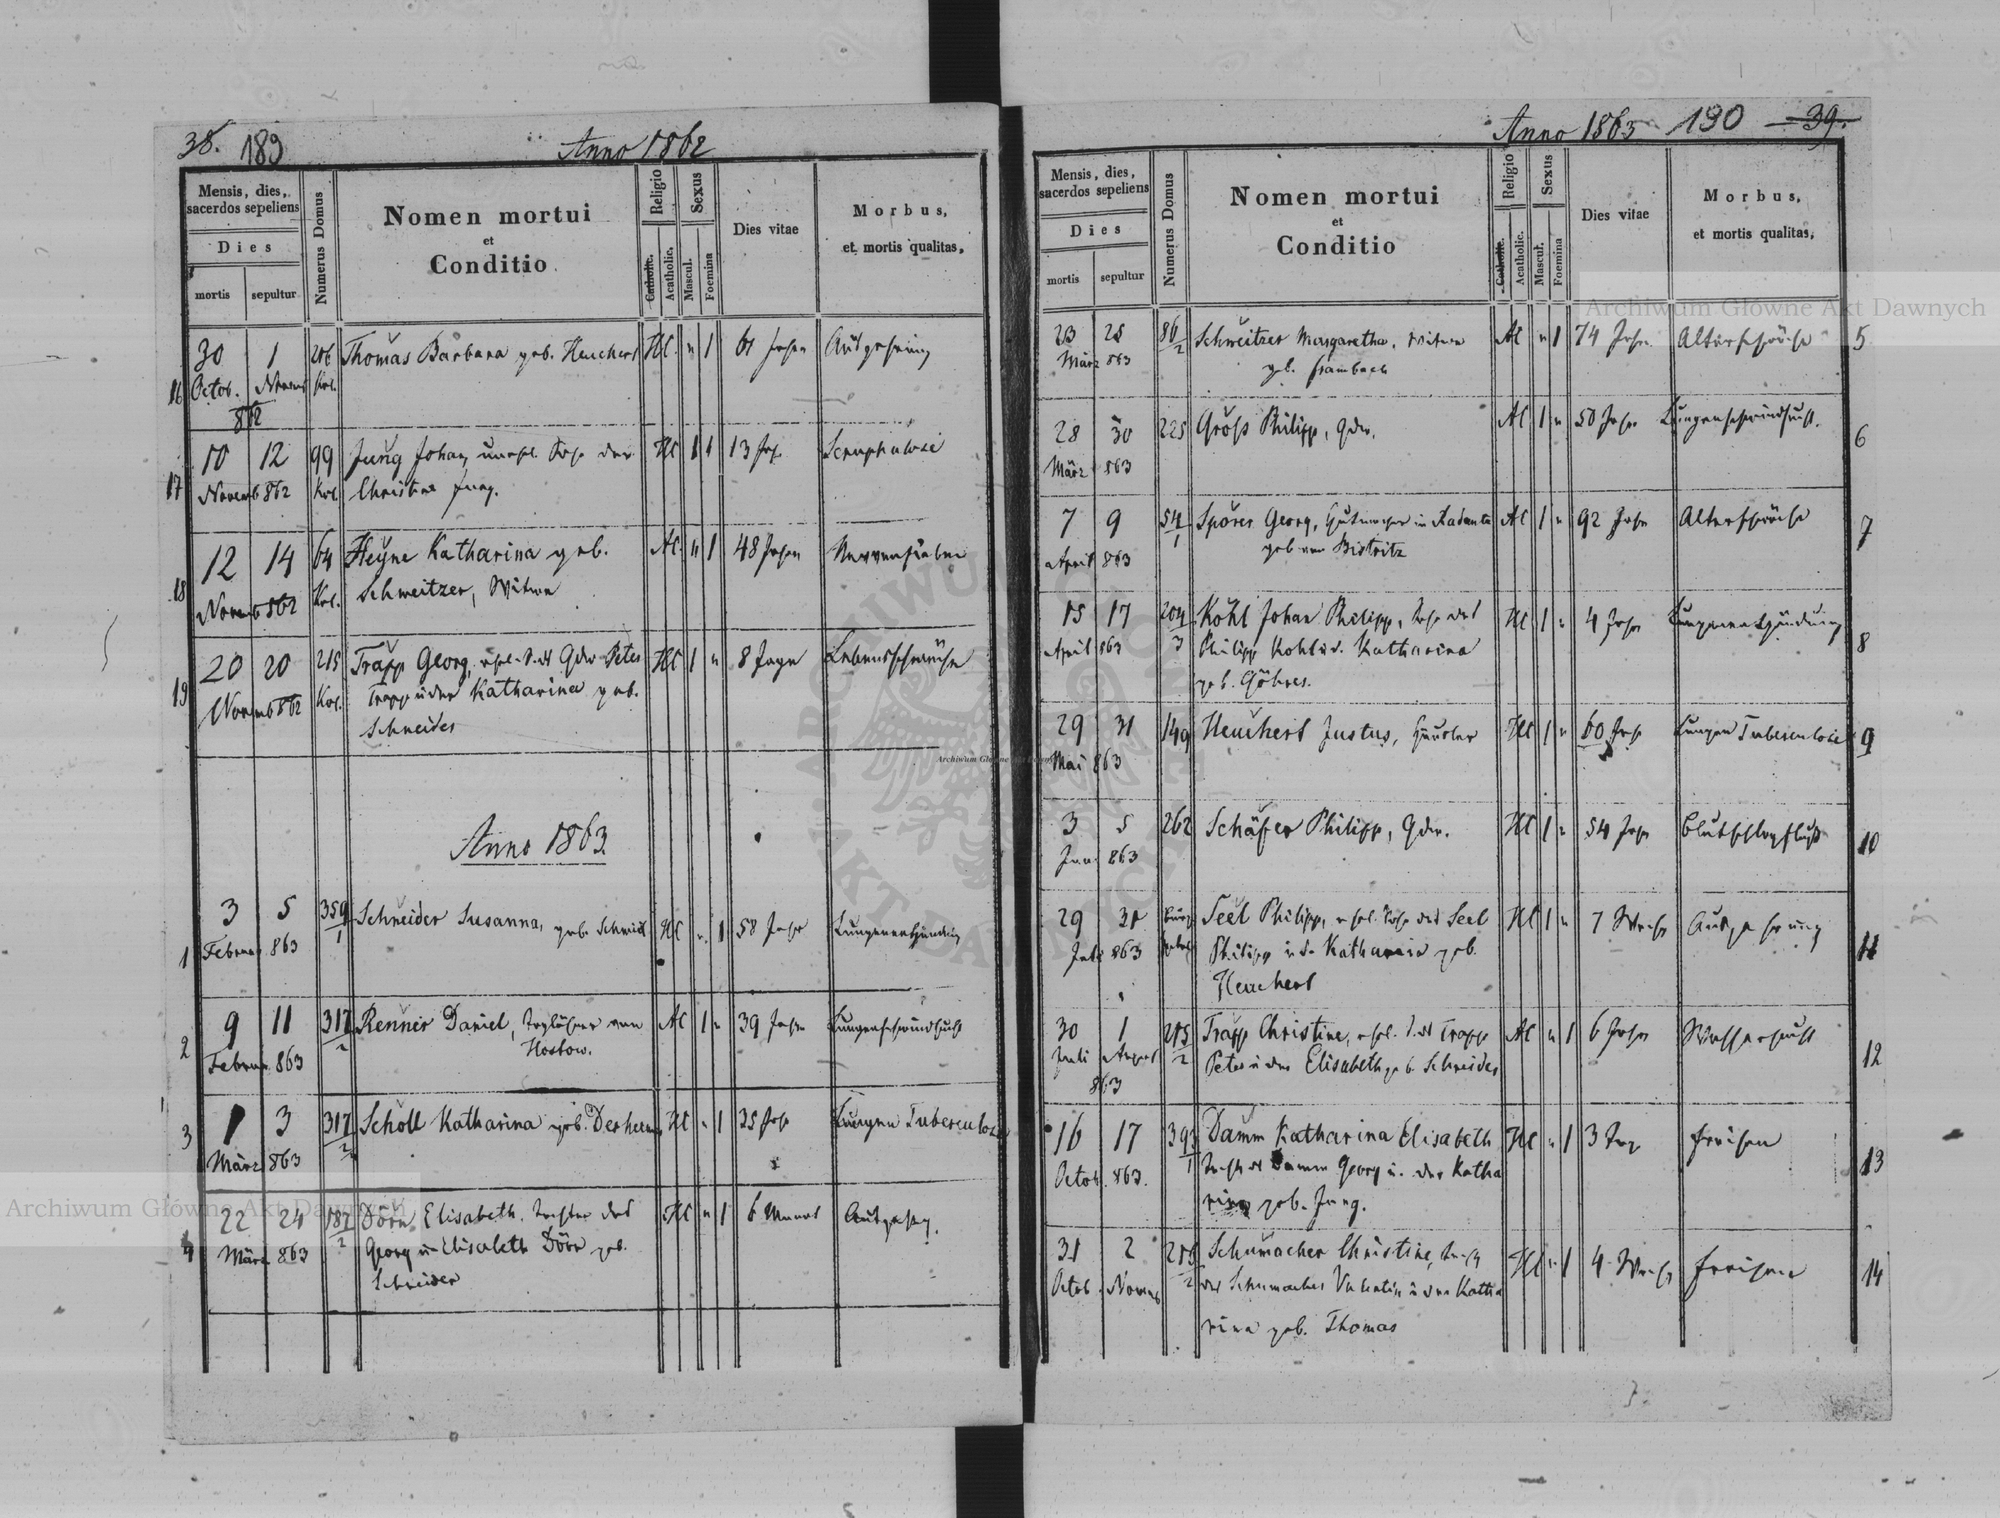 38. 189 Anno 1862
Mensis, dies,
sacerdos sepeliens
Dies
mortis sepultur
Numerus Domus
Nomen mortui
et
Conditio
Religio
Catholic.
Acatholic.
Sexus
Mascul.
Foemina
Dies vitae
Morbus,
et mortis qualitas,
16 30 1 206 Thomas Barbara geb. Heuchert HC " 1 61 Jahre Auszehrung
Octob. Novemb Kol.
862
17 10 12 99 Jung Johan, unehl. Sohn der HC 1 13 Jahr Scrophulose
Novemb 862 Kol. Christine Jung.
18 12 14 64 Heyne Katharina geb. AC " 1 48 Jahre Nervenfieber
Novemb 862 Kol. Schweitzer, Witwe
19 20 20 215 Trapp Georg, ehel. S. des Gdw Peter HC 1 " 8 Tage Lebensschwäche
Novemb 862 Kol. Trapp u der Katharina geb.
Schneider
Anno 1863.
1 3 5 359/1 Schneider Susanna, geb. Schmidt HC " 1 58 Jahre Lungenentzündung
Februar 863
2 9 11 317/2 Renner Daniel, Taglöhner von AC 1 " 39 Jahre Lungenschwindsucht
Februar 863 Hostow.
3 1 3 317/2 Scholl Katharina geb. HC " 1 35 Jahr Lungen Tuberculose
März 863
4 22 24 187/2 Dörr Elisabeth, Tochter des HC " 1 6 Monat Auszehrg.
März 863 Georg u Elisabeth Dörr geb.
Schneider
Anno 1863 190 39.
Mensis, dies,
sacerdos sepeliens
Dies
mortis sepultur
Numerus Domus
Nomen mortui
et
Conditio
Religio
Catholic.
Acatholic.
Sexus
Mascul.
Foemina
Dies vitae
Morbus,
et mortis qualitas,
23 25 86/2 Schweitzer Margaretha, Witwe AC " 1 74 Jahre Altersschwäche 5
März 863 geb. Frambach
28 30 225 Groß Philipp, Gdw. AC 1 " 50 Jahre Lungenschwindsucht. 6
März 863
7 9 54/1 Spörer Georg, Hutmacher in Radautz AC 1 " 92 Jahre Altersschwäche 7
April 863 geb von Bistritz
15 17 204/3 Kohl Johan Philipp, Sohn des HC 1 " 4 Jahre Lungenentzündung 8
April 863 Philipp Kohl u d. Katharina
geb. Göhres.
29 31 149 Heuchert Justus, Häusler HC 1 " 60 Jahr Lungen Tuberculose 9
Mai 863
3 5 262 Schäfer Philipp, Gdw. HC 1 " 54 Jahre Blutschlagfluß 10
Jun 863
29 31 Seel Philipp, ehel. Sohn des Seel HC 1 " 7 Woche Auszehrung 11
Juli 863 Philipp u d. Katharina geb.
Heuchert
30 1 215/2 Trapp Christine, ehel. T. des Trapp AC " 1 6 Jahre Wassersucht 12
Juli August Peter u der Elisabeth geb. Schneider
863
16 17 393/1 Damm Katharina Elisabeth HC " 1 3 Tag Fraisen 13
Octob. 863. Tocht. des Damm Georg u. der Katha
rina geb. Jung.
31 2 256/2 Schumacher Christine, Tocht HC " 1 4 Woche Fraisen 14
Octob. Novemb des Schumacher Valentin u der Katha
rina geb. Thomas
Archiwum Główne Akt Dawnych
Archiwum Główne Akt Dawnych